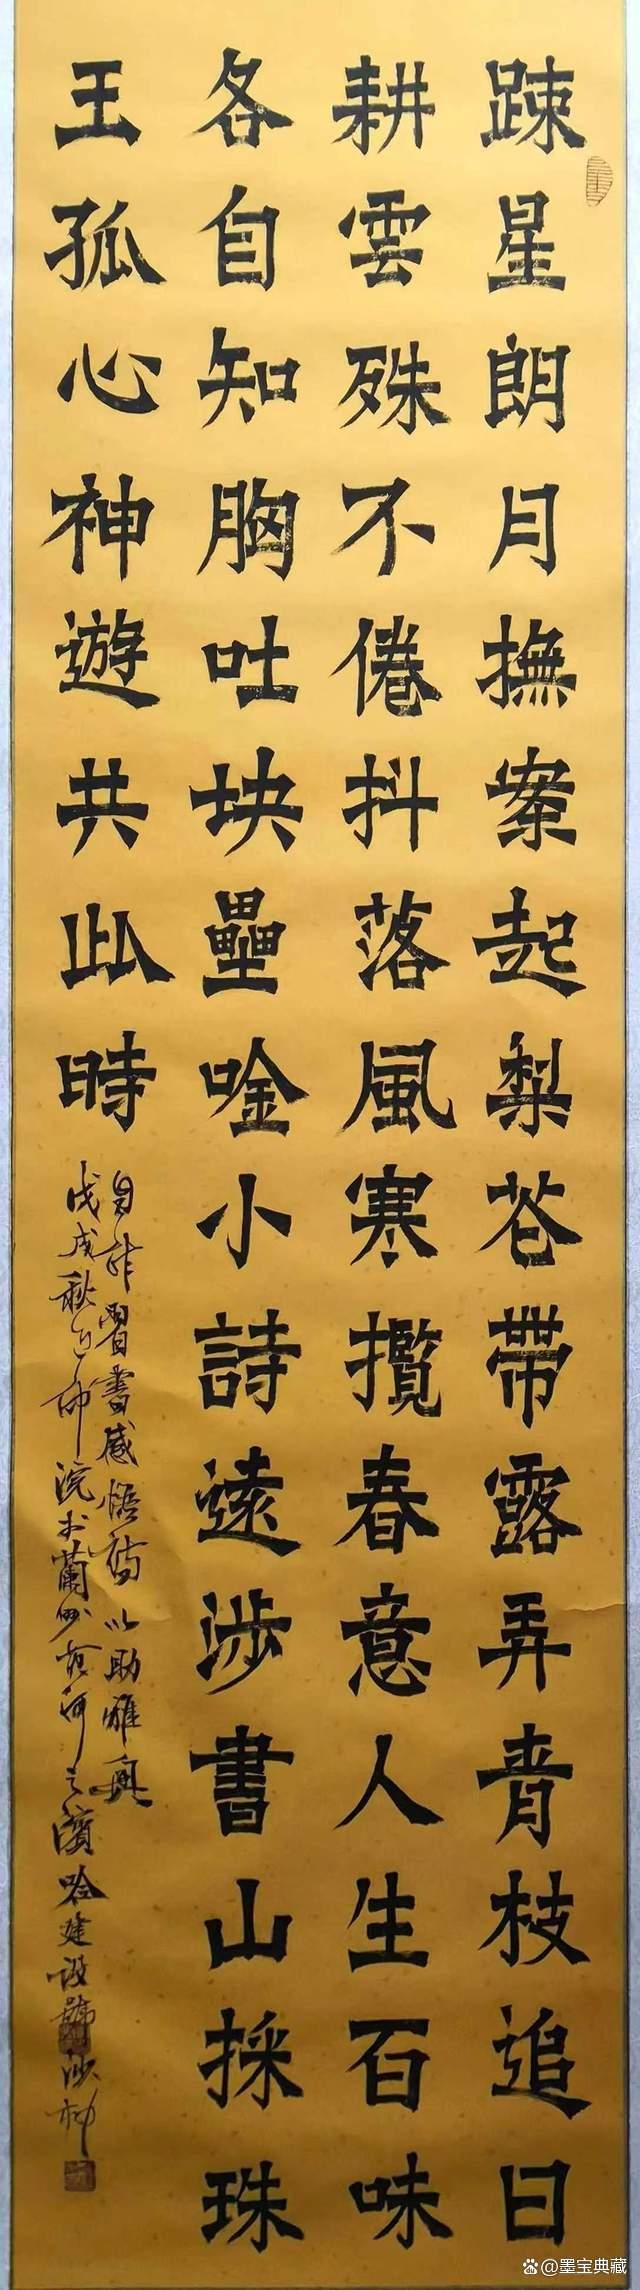 踈星朗月撫案起梨花帶露弄青枝追日
耕雲殊不倦抖落風寒攬春意人生百味
各自知胸吐块壘唫小詩遠涉書山採珠
玉孤心神遊共此時
自作習書感悟詩以助雅興
戊戌秋月師院於蘭州黄河之濱唫建設號沙柳
@墨宝典藏